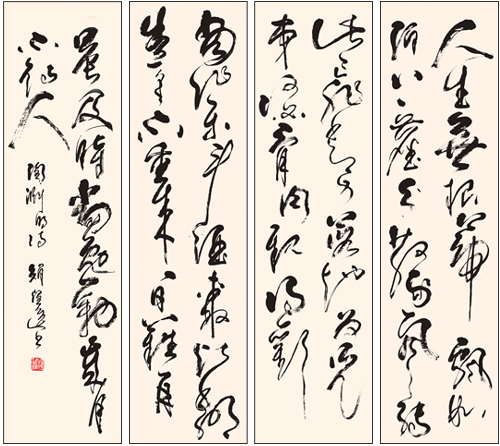 人生無根蒂飄如
陌上塵分散逐風轉
此已非常身落地為兄
弟何必骨肉親得歡
當作樂斗酒聚比鄰
盛年不重來一日難再
晨及時當勉勵歲月
不待人
陶淵明詩 書